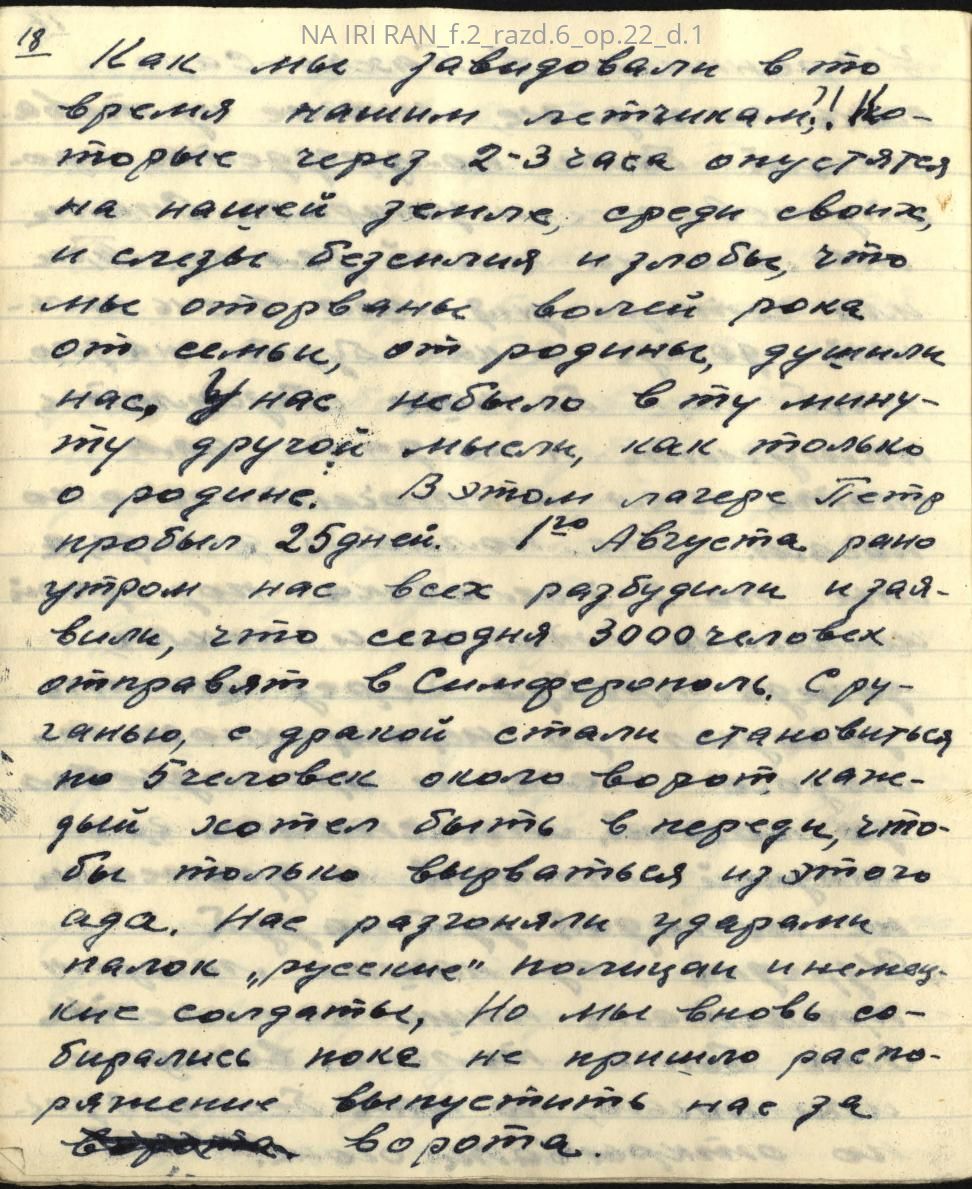 NA IRI RAN_f.2_razd.6_op.22_d.1
18
Как мы завидовали в то
время нашим летчикам,?!. Ко-
торые через 2-3 часа опустятся
на нашей земле, среди своих,
и слезы безсилия и злобы, что
мы оторваны волей рока
от семьи, от родины, душили
нас. У нас небыло в ту мину-
ту другой мысли, как только
о родине. В этом лагере Петр
пробыл 25 дней. 1го Августа рано
утром нас всех разбудили и зая-
вили, что сегодня 3000 человек
отправят в Симферополь. С ру-
ганью, с дракой стали становиться
по 5 человек около ворот, каж-
дый хотел быть в переди, что-
бы только вырваться из этого
ада. Нас разгоняли ударами
палок „русские" полицаи и немец-
кие солдаты, Но мы вновь со-
бирались пока не пришло распо-
ряжение выпустить нас за
ворота. ворота.